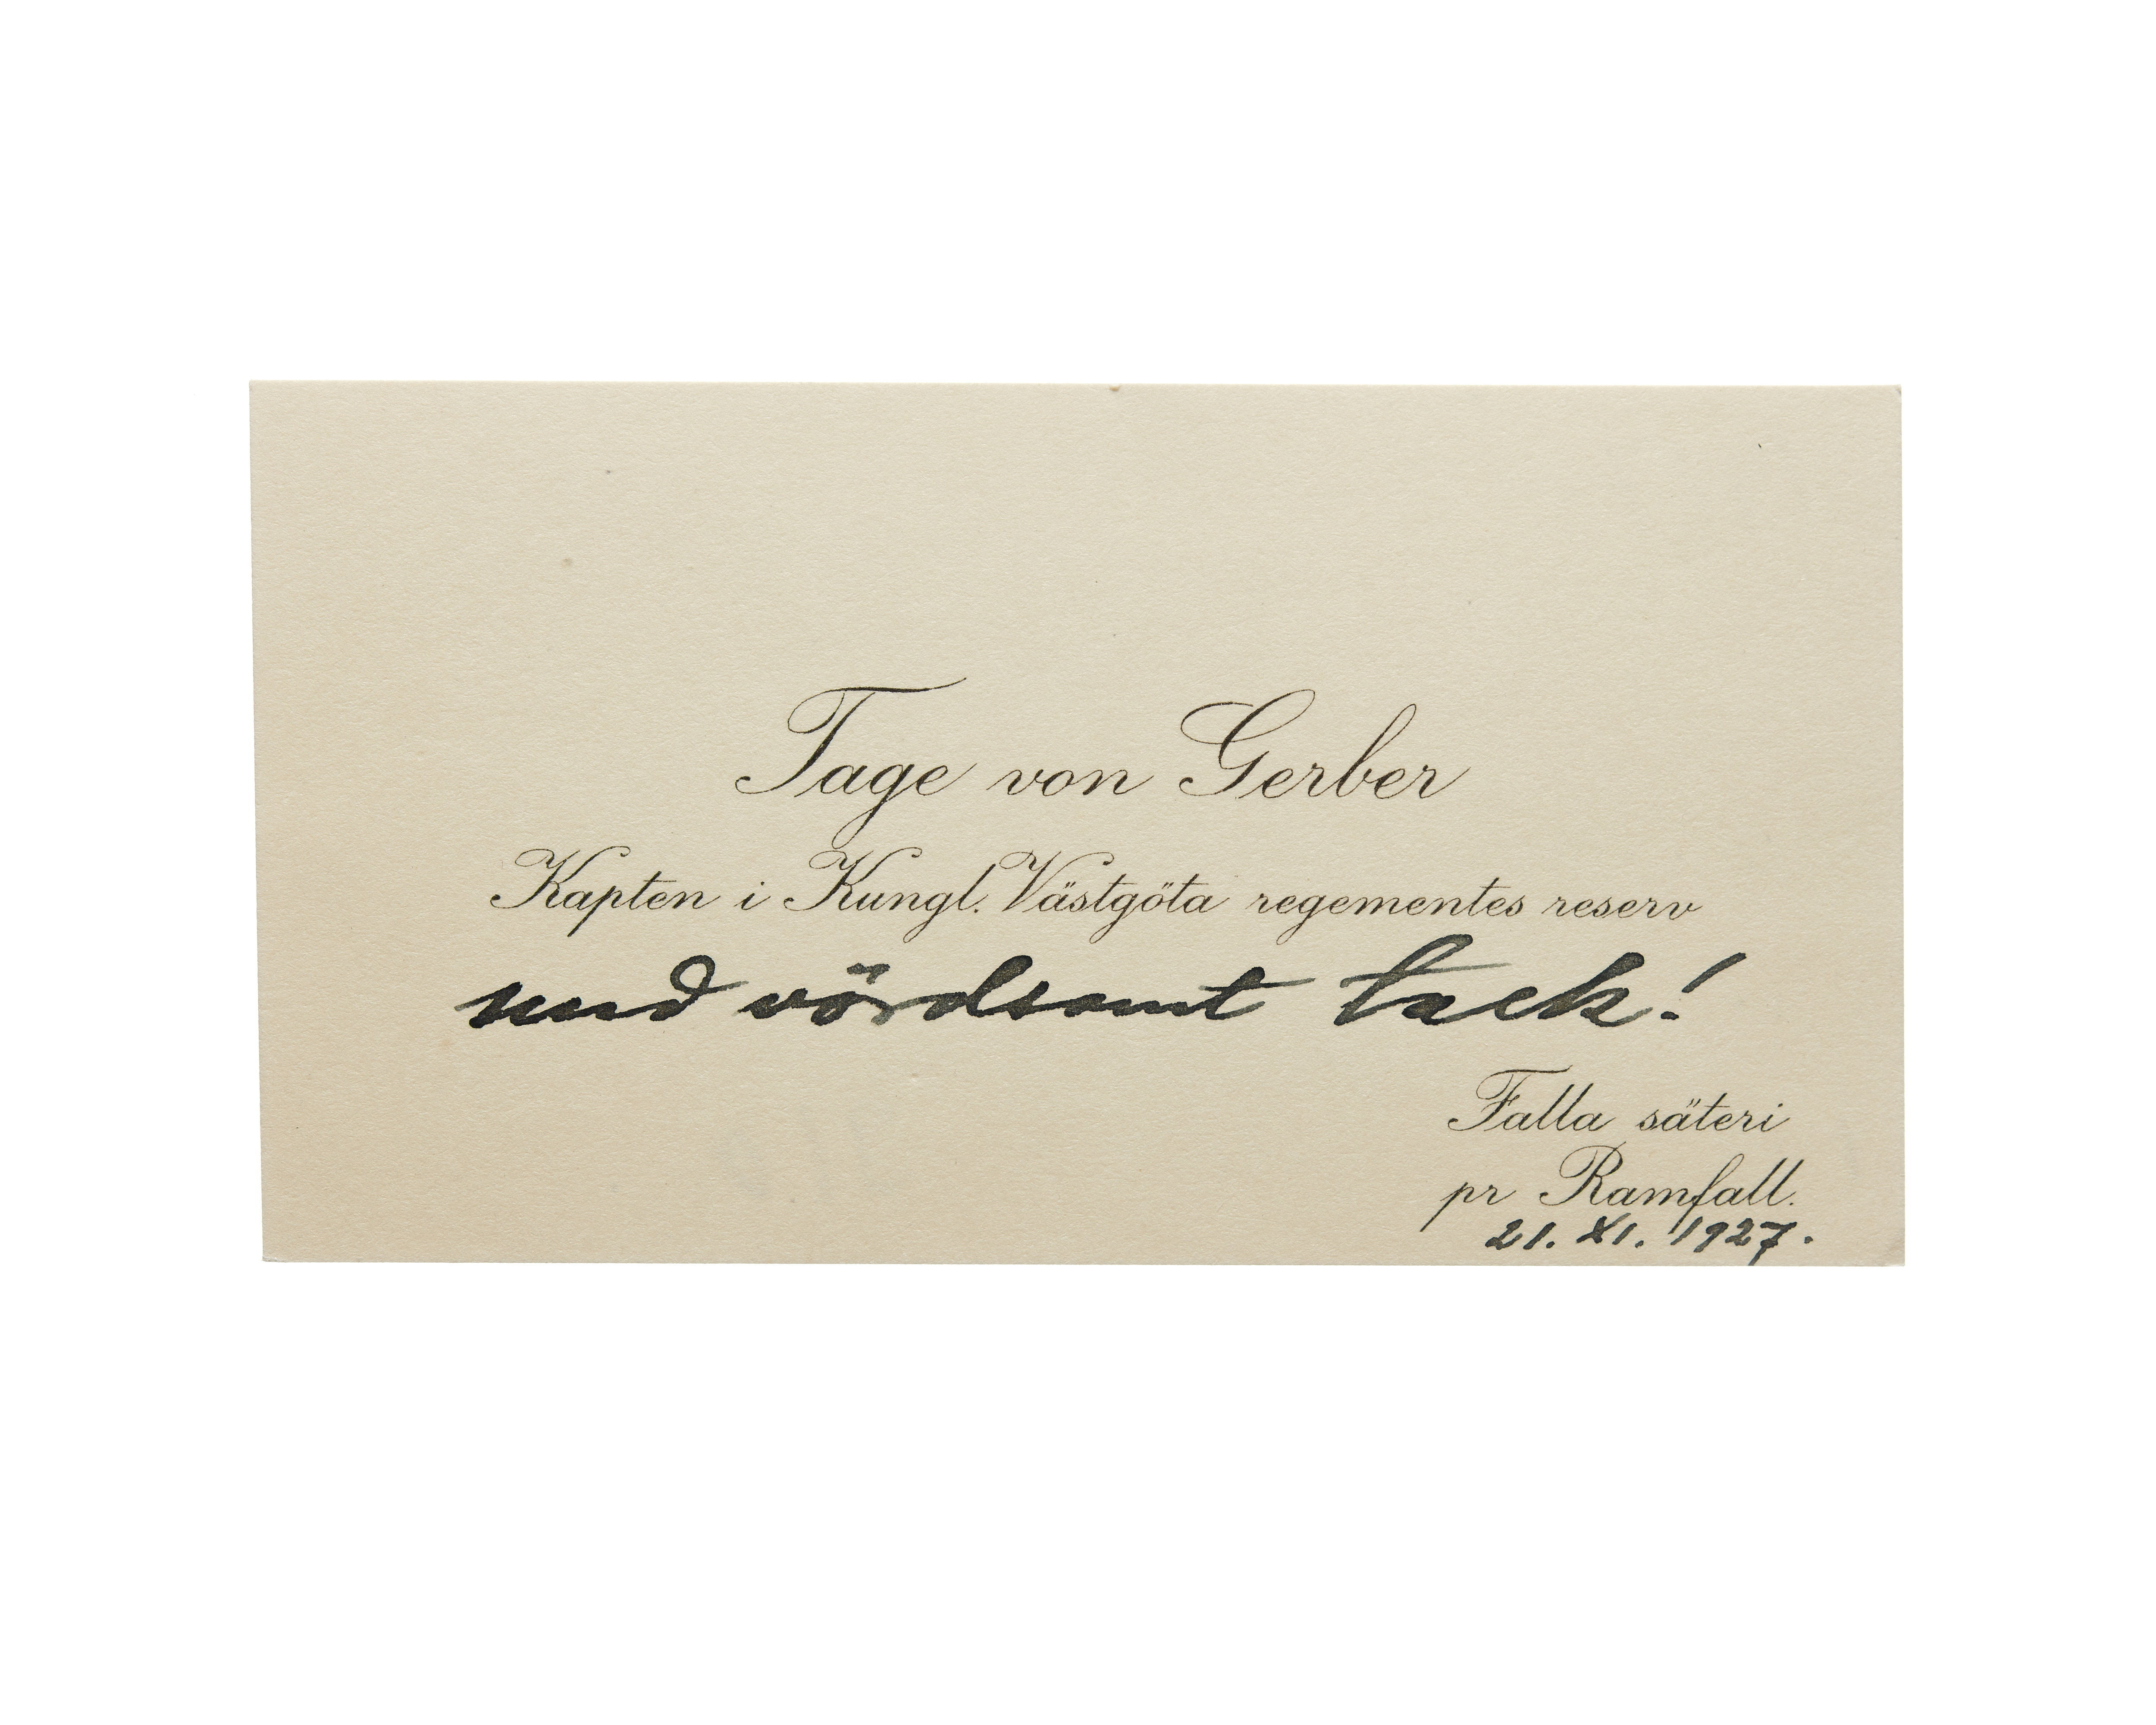 Tage von Gerber
Kapten i Kungl. Västgöta regementes reserv
med vördsamt tack!
Falla säteri
pr Ramfall.
21. XI. 1927.